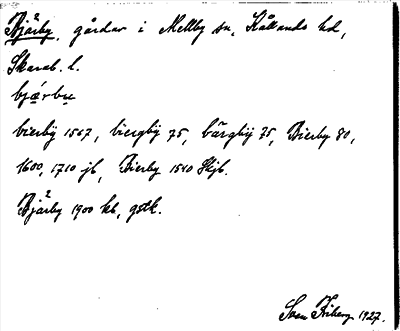 Bjärby, gårdar i Mellby sn, Kållands hd,
Skarab. l.
bjǽrbu
bierbÿ 1567, biergbÿ 75, bärgbÿ 75, Bierby 80,
1600, 1710 jb, Bierby 1540 Skjb.
Bjärby 1900 kb, gstk.
Sven Friberg 1927.